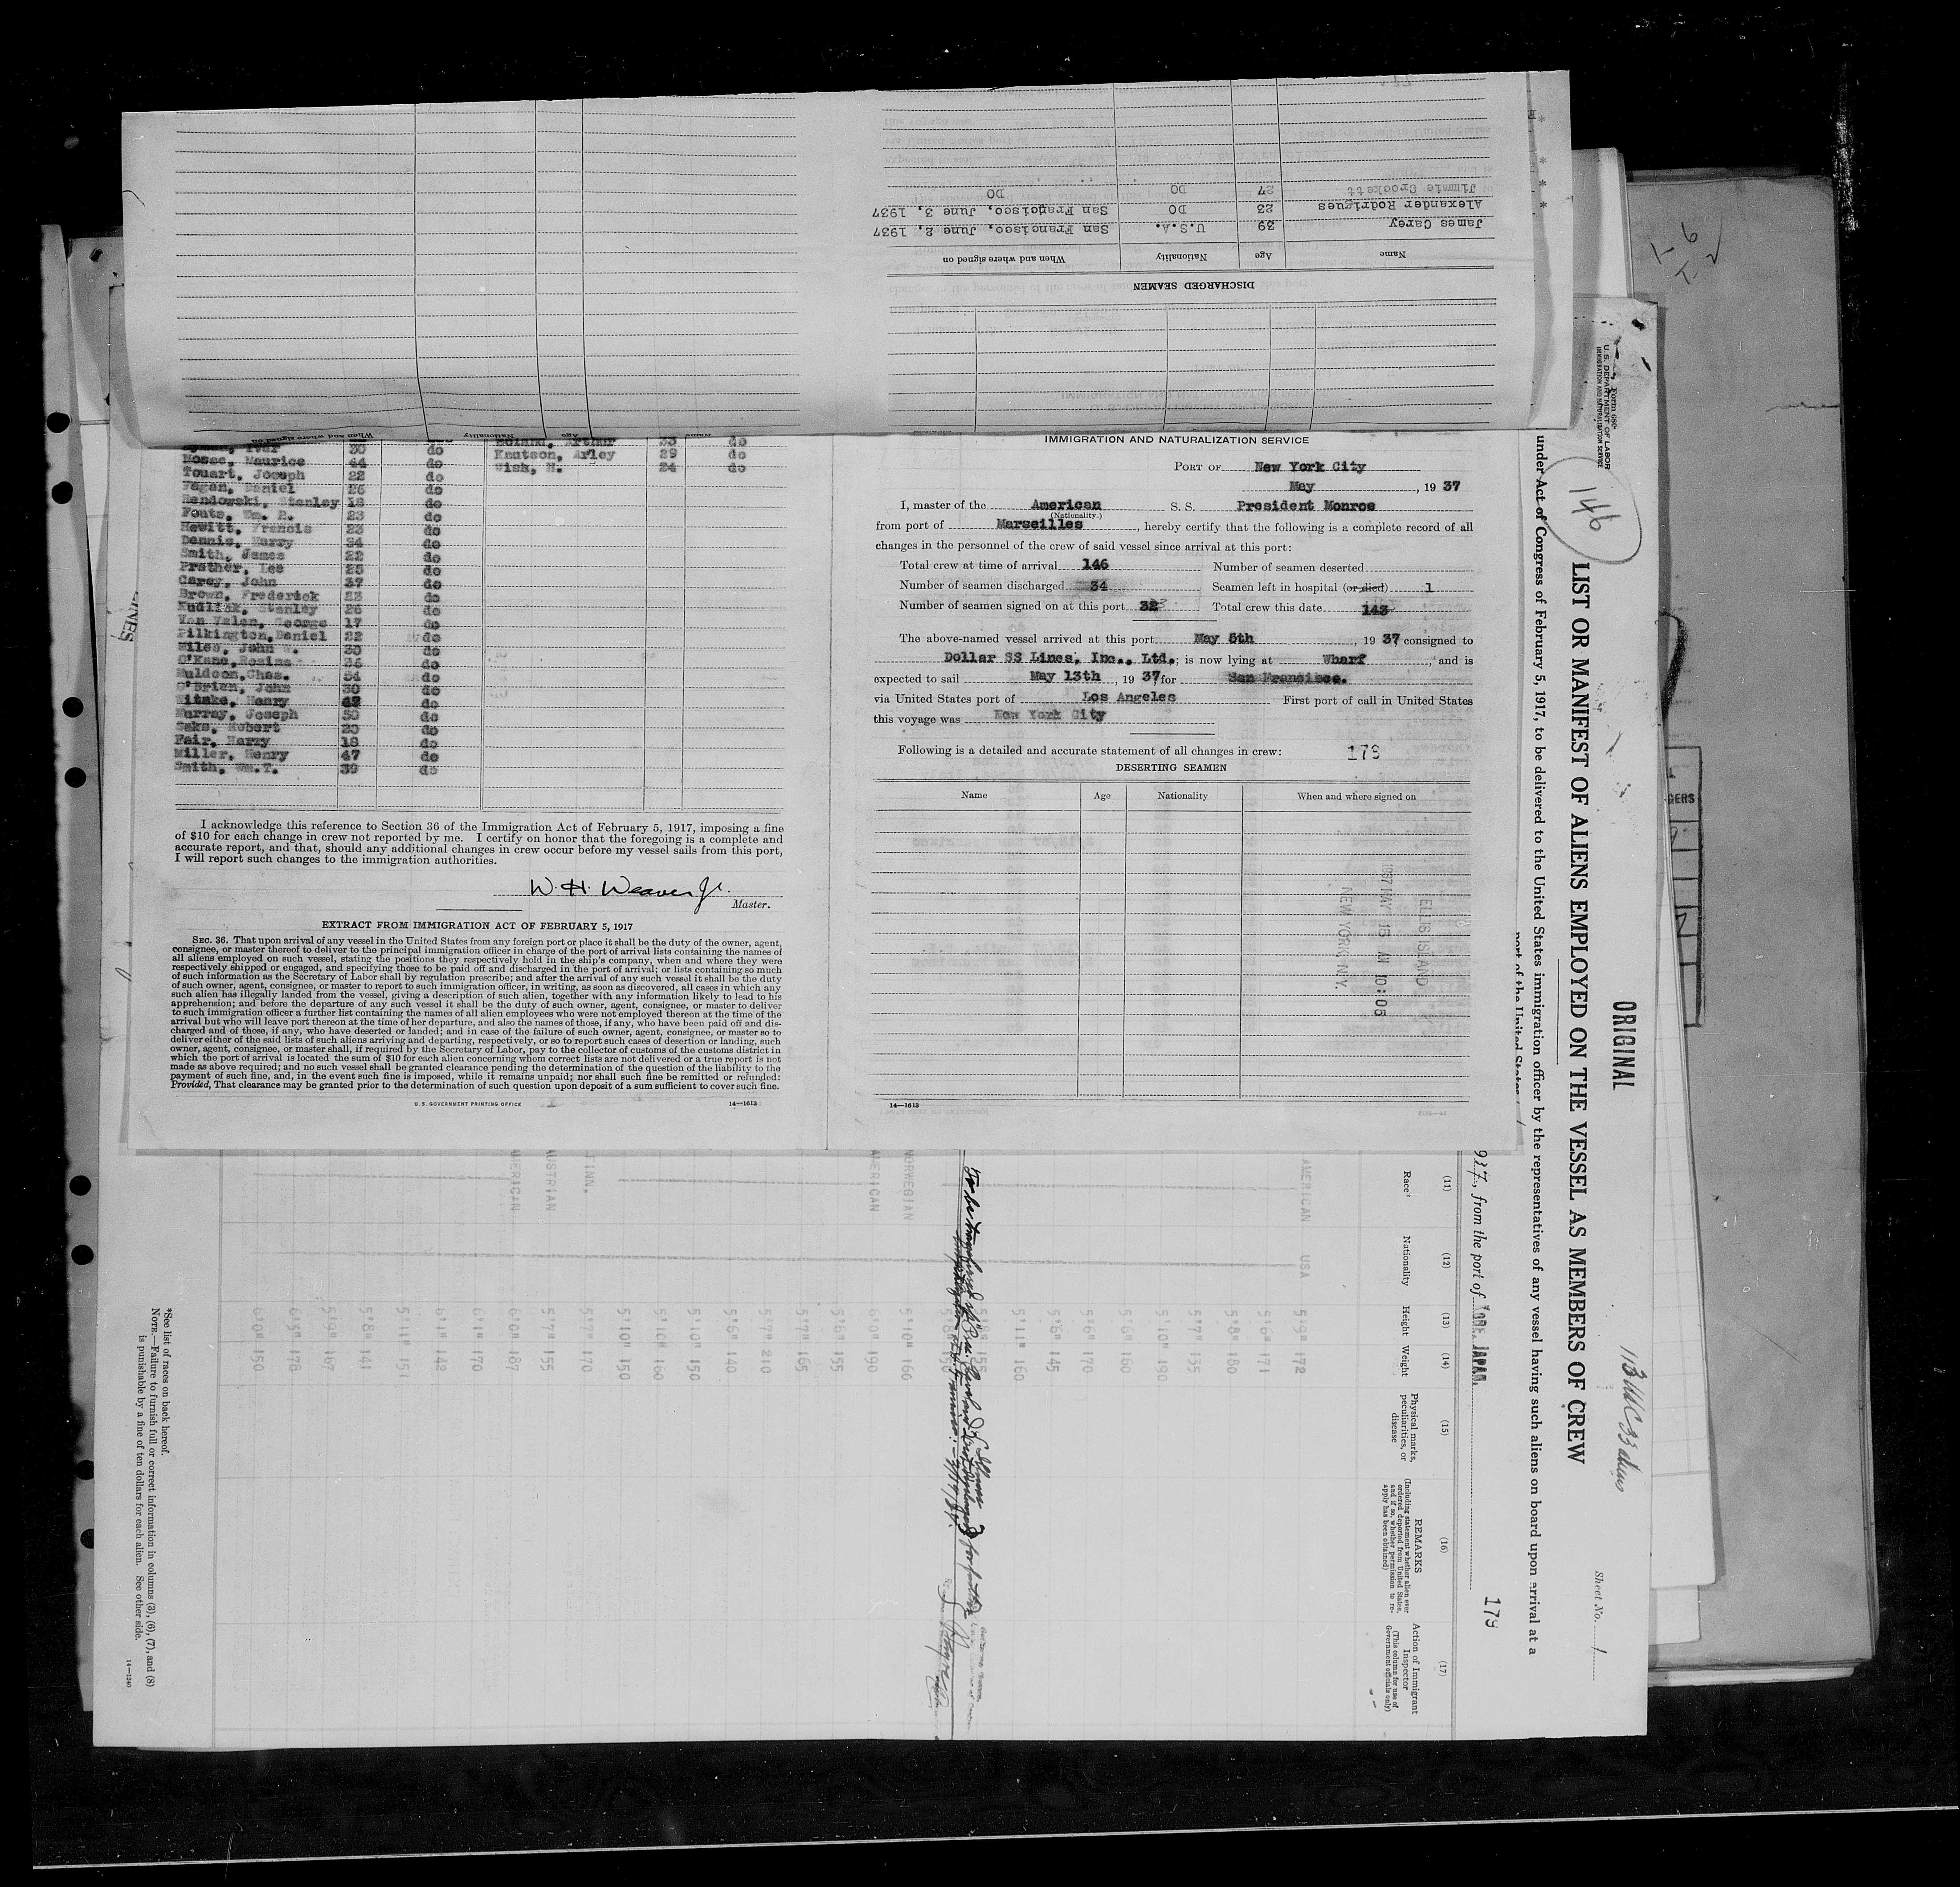 DISCHARGED SEAMEN
Name Age Nationality When and where signed on
James Carey 39 U.S.A. San Francisco, June 2, 1937
Alexander Rodrigues 23 DO San Francisco, June 3, 1937
Jimmie Crockett 27 DO DO
When and where signed on Nationality Age Name
Iver 30 do Arthur 33 do
Mosse, Maurice 44 do Knutson, Arley 29 do
Touart, Joseph 22 do Wish, N. 24 do
Fagan, Daniel 26 do
Rendowski, Stanley 18 do
Fouts, Wm. R. 23 do
Hewitt, Francis 23 do
Dennis, Harry 34 do
Smith, James 22 do
Prather, Lee 25 do
Carey, John 37 do
Brown, Frederick 23 do
Kudlick, Stanley 26 do
Van Valen, George 17 do
Pilkington, Daniel 22 do
Miles, John W. 30 do
O'Kane, 36 do
Muldoon, Chas. 54 do
O'Brien, John 30 do
Witske, Henry do
Murray, Joseph 50 do
Saks, Robert 20 do
Fair, Harry 18 do
Miller, Henry 47 do
Smith, Wm. T. 39 do
I acknowledge this reference to Section 36 of the Immigration Act of February 5, 1917, imposing a fine
of $10 for each change in crew not reported by me. I certify on honor that the foregoing is a complete and
accurate report, and that, should any additional changes in crew occur before my vessel sails from this port,
I will report such changes to the immigration authorities.
W. H. Weaver Jr.
Master.
EXTRACT FROM IMMIGRATION ACT OF FEBRUARY 5, 1917
SEC. 36. That upon arrival of any vessel in the United States from any foreign port or place it shall be the duty of the owner, agent,
consignee, or master thereof to deliver to the principal immigration officer in charge of the port of arrival lists containing the names of
all aliens employed on such vessel, stating the positions they respectively hold in the ship's company, when and where they were
respectively shipped or engaged, and specifying those to be paid off and discharged in the port of arrival; or lists containing so much
of such information as the Secretary of Labor shall by regulation prescribe; and after the arrival of any such vessel it shall be the duty
of such owner, agent, consignee, or master to report to such immigration officer, in writing, as soon as discovered, all cases in which any
such alien has illegally landed from the vessel, giving a description of such alien, together with any information likely to lead to his
apprehension; and before the departure of any such vessel it shall be the duty of such owner, agent, consignee, or master to deliver
to such immigration officer a further list containing the names of all alien employees who were not employed thereon at the time of the
arrival but who will leave port thereon at the time of her departure, and also the names of those, if any, who have been paid off and dis-
charged and of those, if any, who have deserted or landed; and in case of the failure of such owner, agent, consignee, or master so to
deliver either of the said lists of such aliens arriving and departing, respectively, or so to report such cases of desertion or landing, such
owner, agent, consignee, or master shall, if required by the Secretary of Labor, pay to the collector of customs of the customs district in
which the port of arrival is located the sum of $10 for each alien concerning whom correct lists are not delivered or a true report is not
made as above required; and no such vessel shall be granted clearance pending the determination of the question of the liability to the
payment of such fine, and, in the event such fine is imposed, while it remains unpaid; nor shall such fine be remitted or refunded:
Provided, That clearance may be granted prior to the determination of such question upon deposit of a sum sufficient to cover such fine.
U. S. GOVERNMENT PRINTING OFFICE 14—1613
IMMIGRATION AND NATURALIZATION SERVICE
PORT OF New York City
May, 1937
I, master of the American S. S. President Monroe
(Nationality.)
from port of Marseilles, hereby certify that the following is a complete record of all
changes in the personnel of the crew of said vessel since arrival at this port:
Total crew at time of arrival 146 Number of seamen deserted
Number of seamen discharged 34 Seamen left in hospital (or died) 1
Number of seamen signed on at this port 32 Total crew this date 143
The above-named vessel arrived at this port May 5th, 1937 consigned to
Dollar SS Lines, Inc., Ltd.; is now lying at Wharf, and is
expected to sail May 13th, 1937 for San Francisco.
via United States port of Los Angeles First port of call in United States
this voyage was New York City
Following is a detailed and accurate statement of all changes in crew: 179
DESERTING SEAMEN
Name Age Nationality When and where signed on
ELLIS ISLAND
1937 MAY 15 AM 10:05
NEW YORK, N.Y.
14—1613
Form 680
U. S. DEPARTMENT OF LABOR
IMMIGRATION AND NATURALIZATION SERVICE
146
ORIGINAL
113 USC 33 aliens
Sheet No. 1
LIST OR MANIFEST OF ALIENS EMPLOYED ON THE VESSEL AS MEMBERS OF CREW
under Act of Congress of February 5, 1917, to be delivered to the United States immigration officer by the representatives of any vessel having such aliens on board upon arrival at a
port of the United States
from the port of KOBE, JAPAN.
179
(11) (12) (13) (14) (15) (16) (17)
Race* Nationality Height Weight Physical marks, peculiarities, or disease
REMARKS
(Including statement whether alien ever ordered deported from United States, and if so, whether permission to re-apply has been obtained)
Action of Immigrant Inspector
(This column for use of Government officials only)
AMERICAN USA 5'9" 172
5'6" 171
5'8" 180
5'7" 135
5'10" 190
5'6" 160
5'6" 170
5'6" 145
5'11" 160
NORWEGIAN 5'10" 160
AMERICAN 6'0" 190
5'6" 155
5'7" 165
5'7" 210
5'6" 140
5'10" 150
5'10" 160
5'10" 150
FINN. 5'7" 170
AUSTRIAN 5'7" 155
AMERICAN 6'0" 187
6'1" 170
6'1" 148
5'11" 151
5'8" 141
5'9" 167
5'6" 178
6'0" 150
*See list of races on back hereof.
NOTE.—Failure to furnish full or correct information in columns (3), (6), (7), and (8)
is punishable by a fine of ten dollars for each alien. See other side.
14—1240